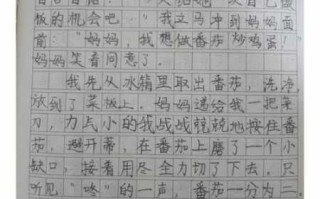 饭的机会吧"我立马冲到妈妈面
前:"妈妈,我想做番茄炒鸡蛋!
妈妈笑着同意了。
我先从冰箱里取出番茄,洗净,
放到了菜板上。妈妈递给我一把菜
刀,力气小的我战战兢兢地按住番
茄,避开蒂,在番茄上磨了一个小
缺口,接着用尽全力切了下去,只
听见"咚"的一声,番茄一分为二